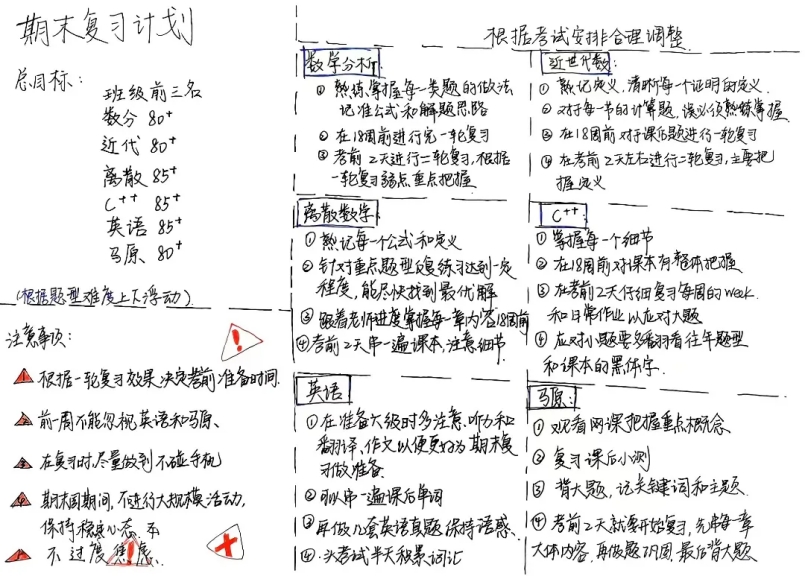 期末复习计划
总目标：
班级前三名
数分 80+
近代 80+
离散 85+
C++ 85+
英语 85+
马原 80+
(根据题型难度上下浮动)
注意事项：
！
1 根据一轮复习效果决定考前准备时间.
2 前一周不能忽视英语和马原、
3 在复习时尽量做到不碰手机
4 期末周期间,不进行大规模活动,
保持稳定心态.不
5 不过度焦虑.
根据考试安排合理调整.
数学分析：
① 熟练掌握每一类题的做法
记准公式和解题思路
② 在18周前进行完一轮复习
③ 考前2天进行二轮复习,根据
一轮复习弱点重点把握
离散数学
① 熟记每一个公式和定义
② 针对重点题型反复练习达到一定
程度,能尽快找到最优解
③ 跟着老师进度掌握每一章内容18周前
④ 考前2天串一遍课本,注意细节.
英语
① 在准备六级时多注意、听力和
翻译、作文以便更好为期末复
习做准备.
② 可以串一遍课后单词
③ 再做几套英语真题保持语感、
④ 考试半天积累词汇
近世代数：
① 熟记定义,清晰每一个证明的定义.
② 对于每一节的计算题,误必须熟练掌握
③ 在18周前对于课后题进行一轮复习
④ 在考前2天左右进行二轮复习,主要把
握定义
C++：
① 掌握每一个细节
② 在18周前对课本有整体把握
③ 在考前2天仔细复习每周的week.
和日常作业以应对大题
④ 应对小题要多翻看往年题型
和课本的黑体字.
马原：
① 观看网课把握重点概念
② 复习课后小测
③ 背大题,记关键词和主题.
④ 考前2天就要开始复习,先串每一章
大体内容,再做题巩固,最后背大题